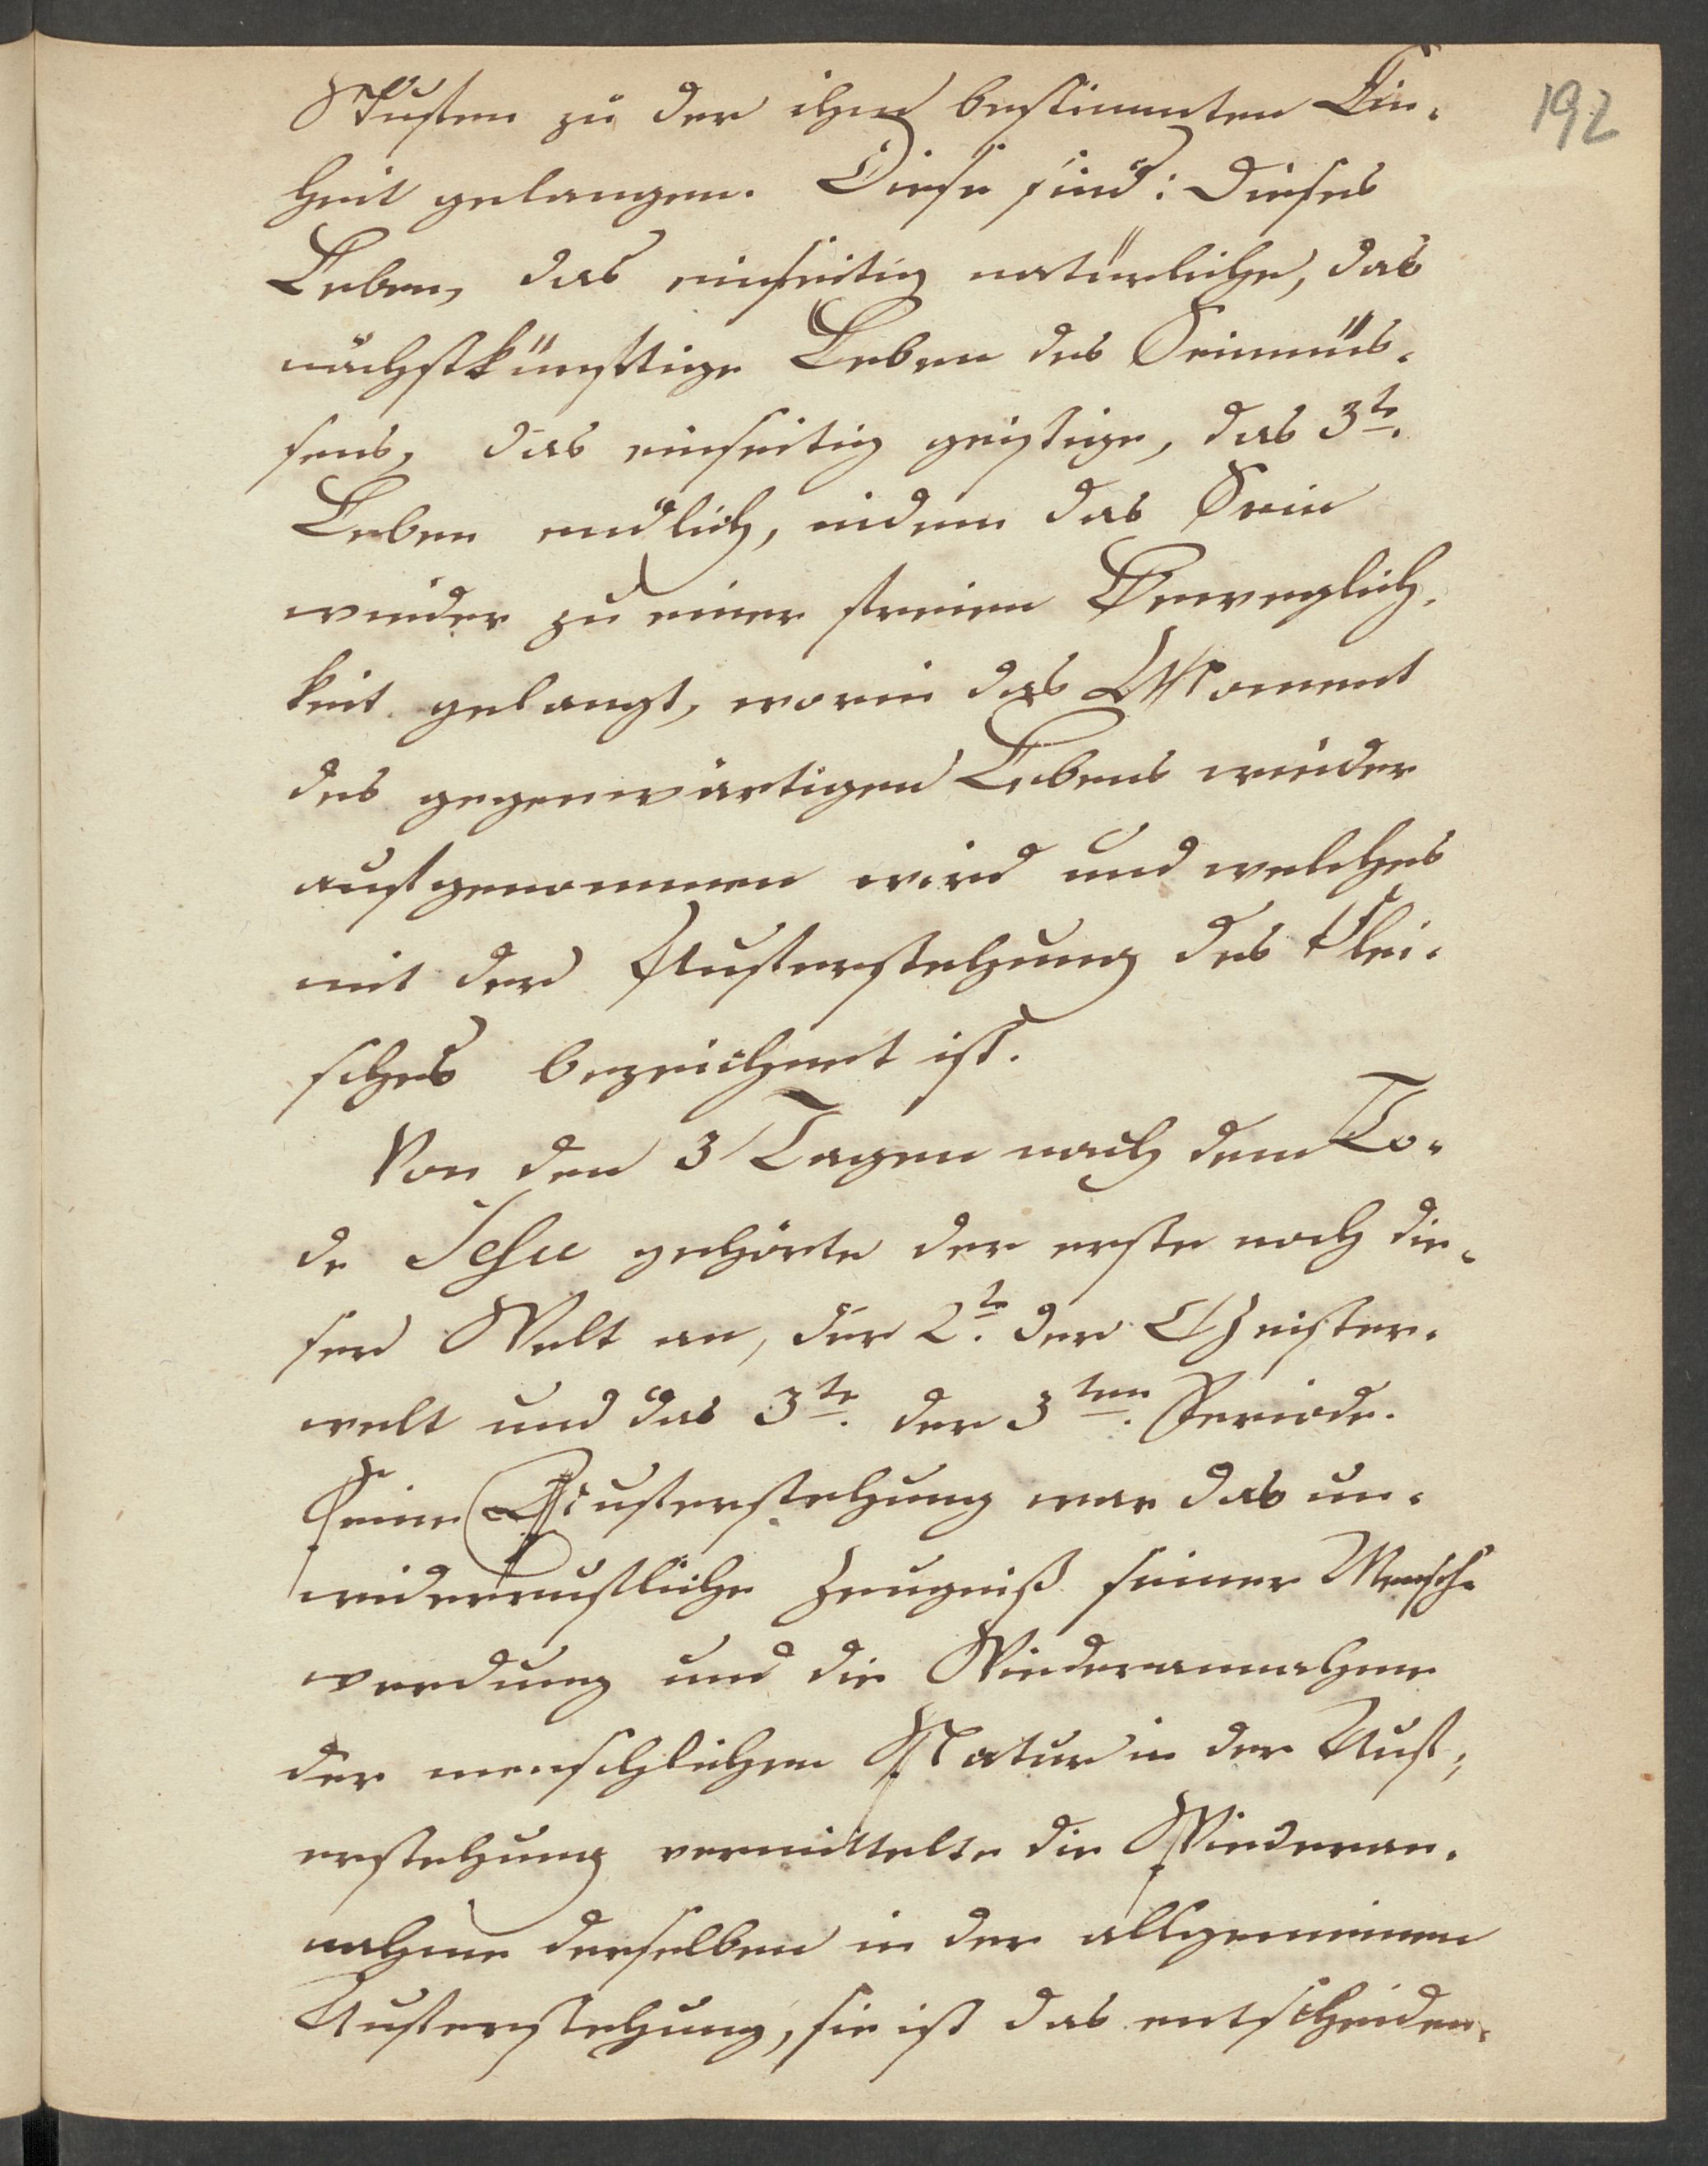 192
Stufen zu der ihm bestimmten Ein-
heit gelangen. Diese sind: dieses
Leben, das einseitig natürliche, das
nächstkünftige Leben des Seinmüs-
sens, das einseitig geistige, das 3te.
Leben endlich, indem das Sein
wieder zu einer freien Beweglich-
keit gelangt, worin das Moment
des gegenwärtigen Lebens wieder
aufgenommen wird und welches
mit der Auferstehung des Flei-
sches bezeichnet ist.
Von den 3 Tagen nach dem To-
de Jesu gehörte der erste noch die-
ser Welt an, der 2te. der Geister-
welt und das 3te. der 3ten. Periode.
Seine Auferstehung war das un-
widerrufliche Zeugniß seiner Mensch-
werdung und die Wiederannahme
der menschlichen Natur in der Auf-
erstehung vermittelte die Wiederan-
nahme derselben in der allgemeinen
Auferstehung, sie ist das entscheiden-